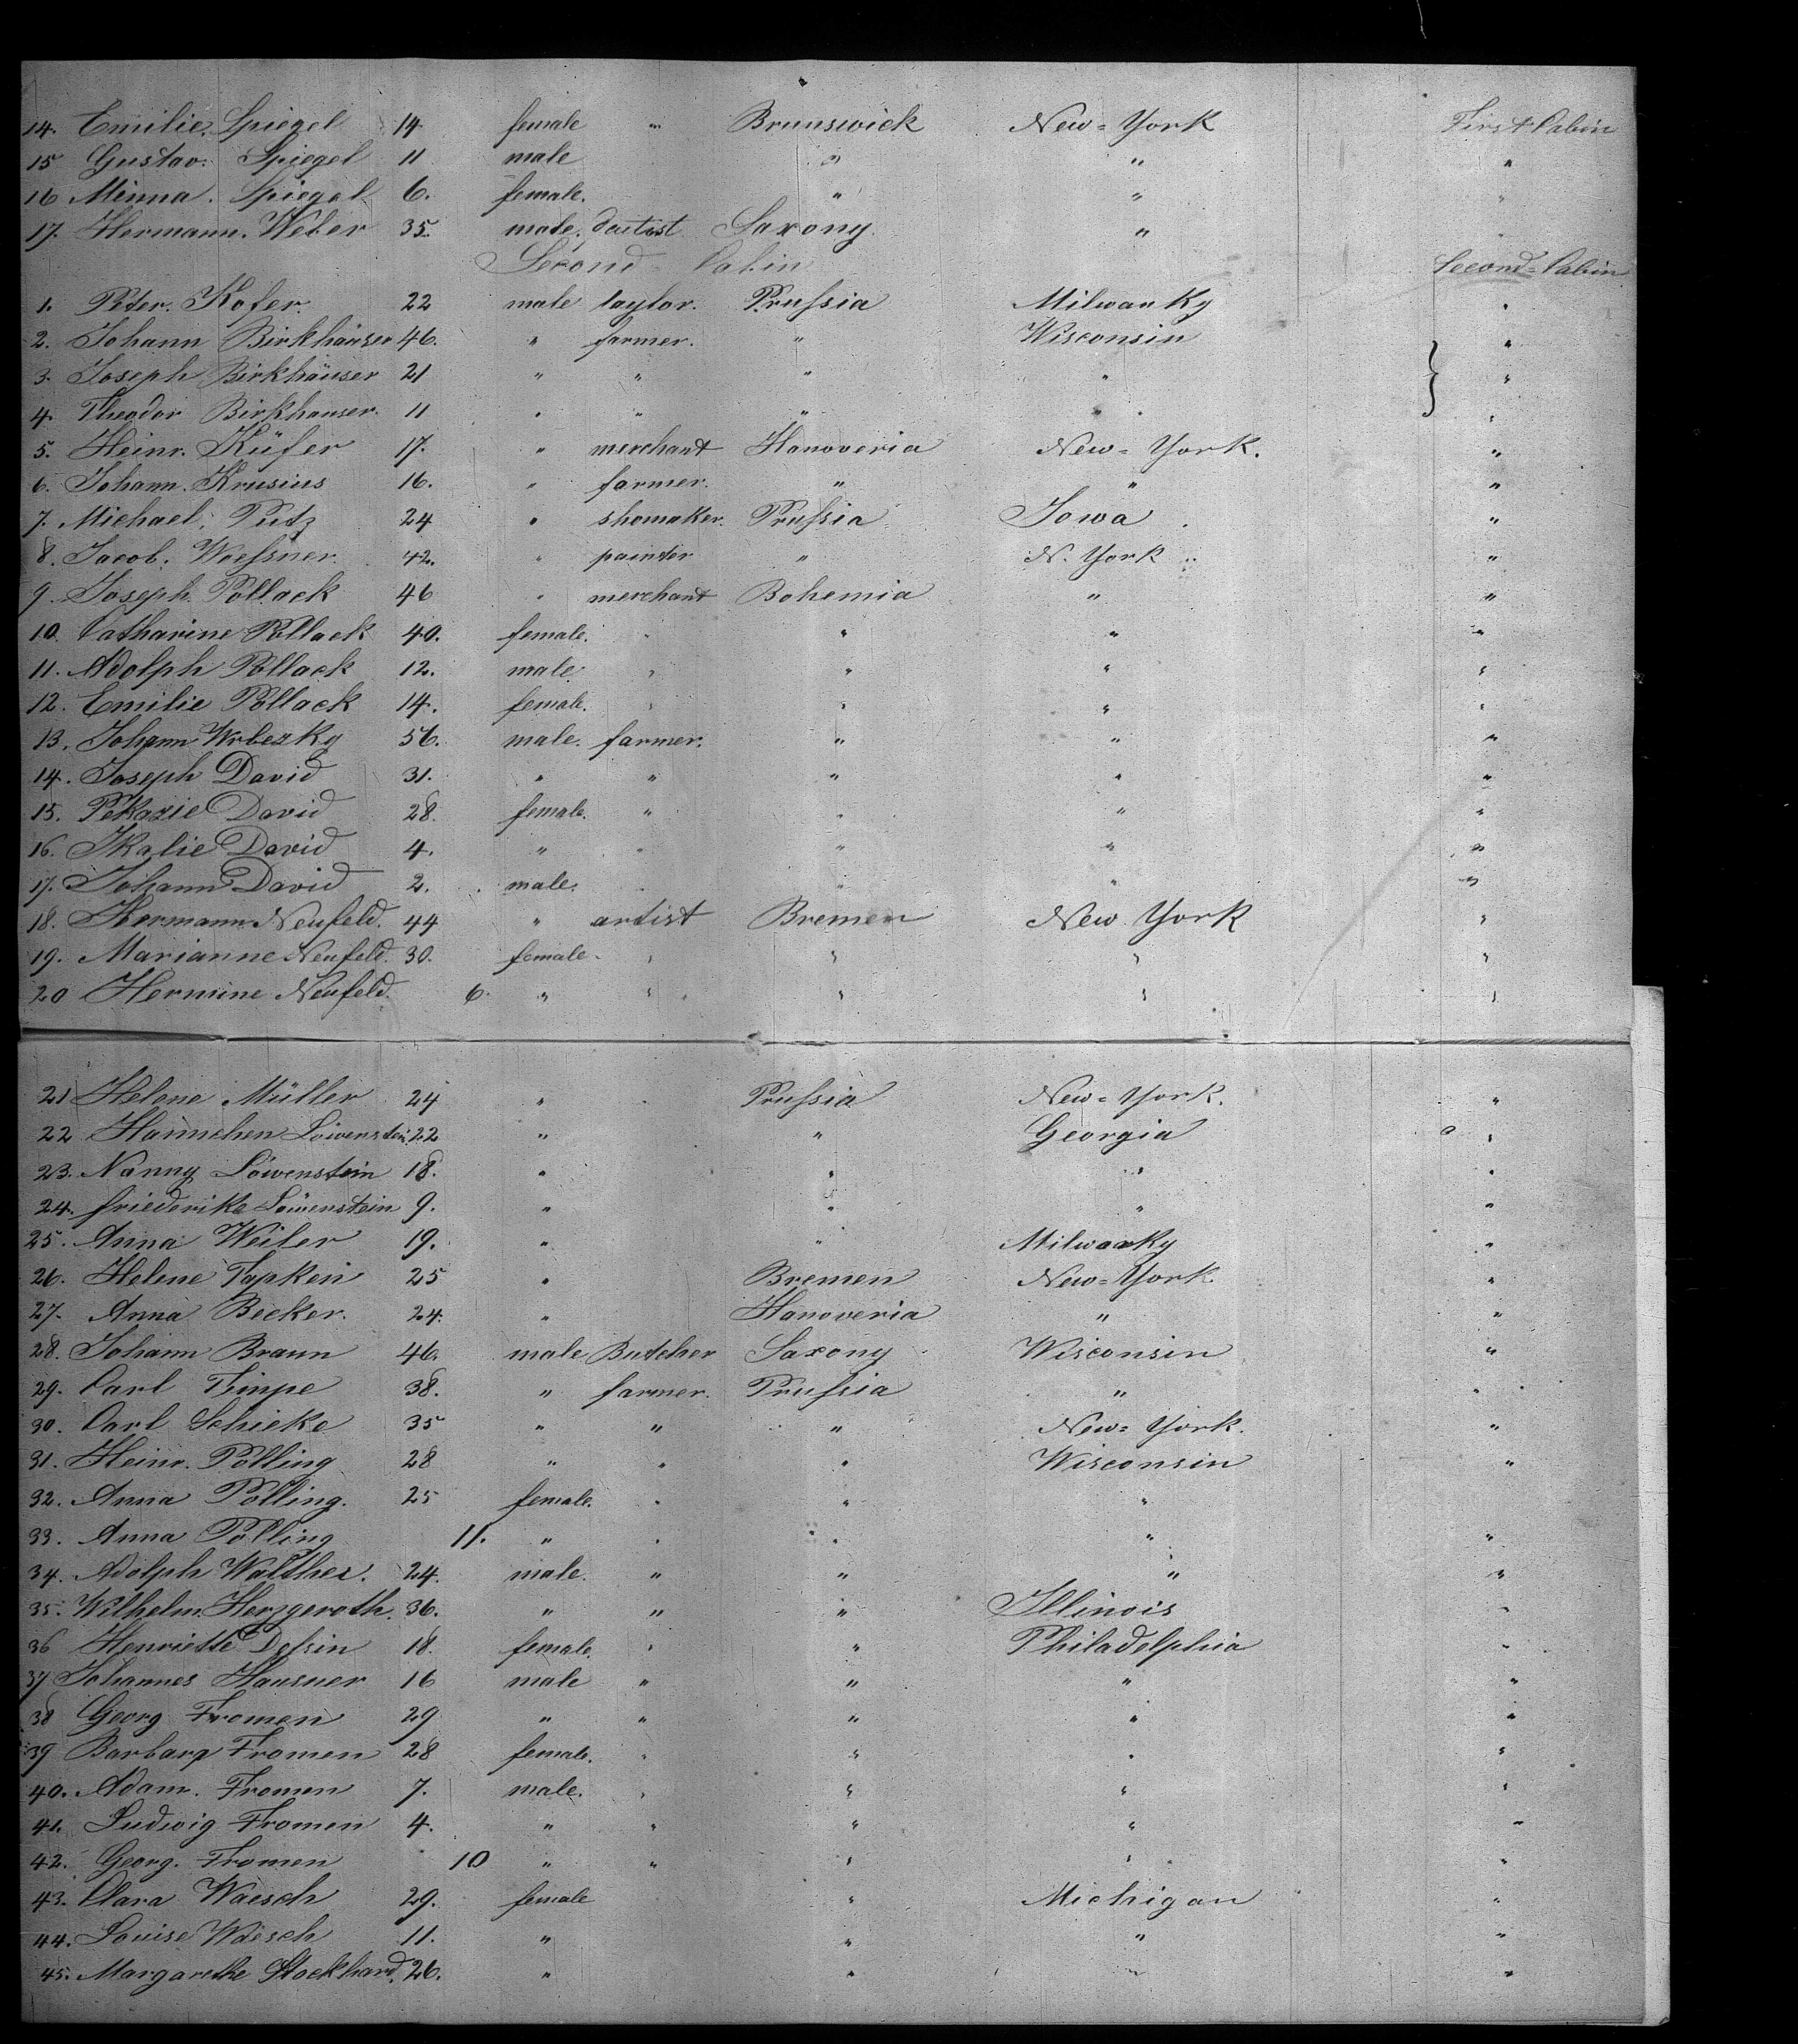 14. Emilie. Spiegel 14. female " Brunswick New-York First Cabin
15 Gustav. Spiegel 11 male " " "
16 Minna. Spiegel 6. female. " " "
17. Hermann. Weber 35. male. dentist Saxony. " "
Second-Cabin Second-Cabin
1. Peter. Kofer. 22 male taylor. Prussia Milwauky "
2. Johann Birkhäuser 46. " farmer. " Wisconsin "
3. Joseph Birkhäuser 21 " " " " "
4. Theodor Birkhauser. 11 " " " " "
5. Heinr. Küfer 17. " merchant Hanoveria New-York. "
6. Johann. Krusius 16. " farmer. " " "
7. Michael. Putz 24 " shomaker. Prussia Iowa "
8. Jacob. Woessner. 42. " painter " N. York "
9. Joseph. Pollack 46 " merchant Bohemia " "
10. Catharine Pollack 40. female. " " " "
11. Adolph Pollack 12. male. " " " "
12. Emilie Pollack 14. female. " " " "
13. Johann Wrbezky 56. male. farmer. " " "
14. Joseph David 31. " " " " "
15. David 28. female. " " " "
16. David 4. " " " " "
17. Johann David 2. male. " " " "
18. Hermann Neufeld. 44 " artist Bremen New York "
19. Marianne Neufeld. 30. female. " " " "
20 Hermine Neufeld. 6. " " " " "
21 Helene Müller 24 " " Prussia New-York. "
22 Hannchen Löwenstein 22 " " Georgia "
23. Nanny Löwenstein 18. " " " "
24. Friederike Löwenstein 9. " " " "
25. Anna Weiler 19. " " Milwauky "
26. Helene Tapken 25 " Bremen New-York. "
27. Anna Becker. 24. " Hanoveria " "
28. Johann Braun 46. male Butcher Saxony Wisconsin "
29. Carl Timpe 38. " farmer. Prussia " "
30. Carl Schieke 35 " " " New-York. "
31. Heinr. Pölling 28 " " " Wisconsin "
32. Anna Pölling. 25 female. " " "
33. Anna Pölling 11. " " " " "
34. Adolph Walther. 24. male. " " " "
35. Wilhelm. Herzgeroth. 36. " " " Illinois "
36 Henriette Dessin 18. female. " " Philadelphia "
37 Johannes Hausner 16 male " " " "
38 Georg Fromen 29 " " " " "
39 Barbara Fromen 28 female. " " " "
40. Adam. Fromen 7. male. " " " "
41. Ludwig Fromen 4. " " " " "
42. Georg. Fromen 10 " " " " "
43. Clara Waesch 29. female " Michigan "
44. Louise Waesch 11. " " " "
45. Margarethe Stockhard. 26. " " " "